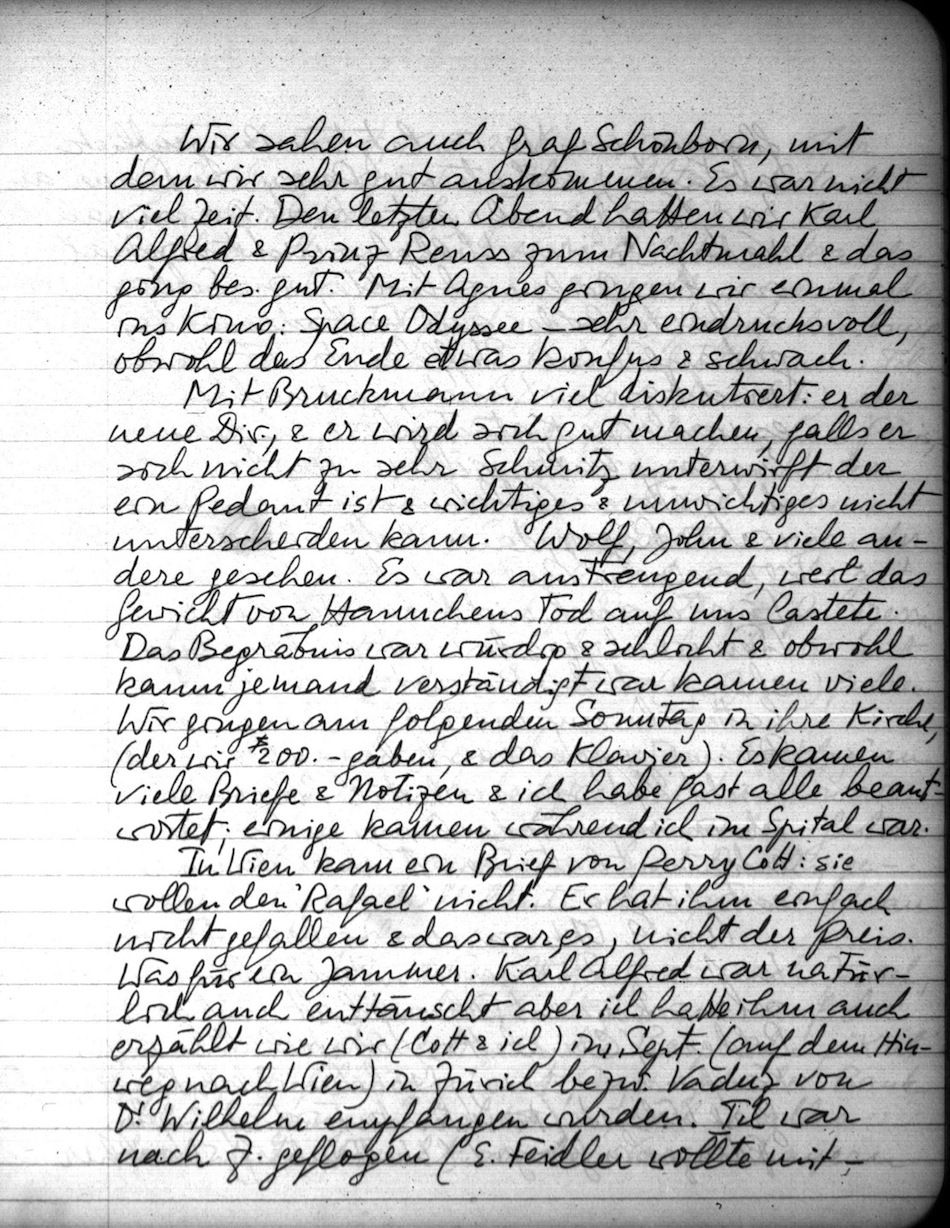 Wir sahen auch Graf Schönborn, mit
dem wir sehr gut auskommen. Es war nicht
viel Zeit. Den letzten Abend hatten wir Karl
Alfred & Prinz Reuss zum Nachtmahl & das
ging bes. gut. Mit Agnes gingen wir einmal
ins Kino: Space Odyssee – sehr eindrucksvoll,
obwohl das Ende etwas konfus & schwach.
Mit Bruckmann viel diskutiert: er der
neue Dir., & er wird sich gut machen, falls er
sich nicht zu sehr Schmitz unterwirft der
ein Pedant ist & wichtiges & unwichtiges nicht
unterscheiden kann. Wolf, John & viele an-
dere gesehen. Es war anstrengend, weil das
Gewicht von Hannchens Tod auf uns lastete.
Das Begräbnis war würdig & schlicht & obwohl
kaum jemand verständigt war kamen viele.
Wir gingen am folgenden Sonntag in ihre Kirche,
(der wir $200.- gaben, & das Klavier). Es kamen
viele Briefe & Notizen & ich habe fast alle beant-
wortet; einige kamen während ich im Spital war.
In Wien kam ein Brief von Perry Cott: sie
wollen den 'Rafael' nicht. Er hat ihm einfach
nicht gefallen & das war's, nicht der Preis.
Was für ein Jammer. Karl Alfred war natür-
lich auch enttäuscht aber ich hatte ihm auch
erzählt wie wir (Cott & ich) im Sept. (auf dem Hin-
weg nach Wien) in Zürich bezw. Vaduz von
Dr. Wilhelm empfangen wurden. Til war
nach Z. geflogen (E. Feidler wollte mit-